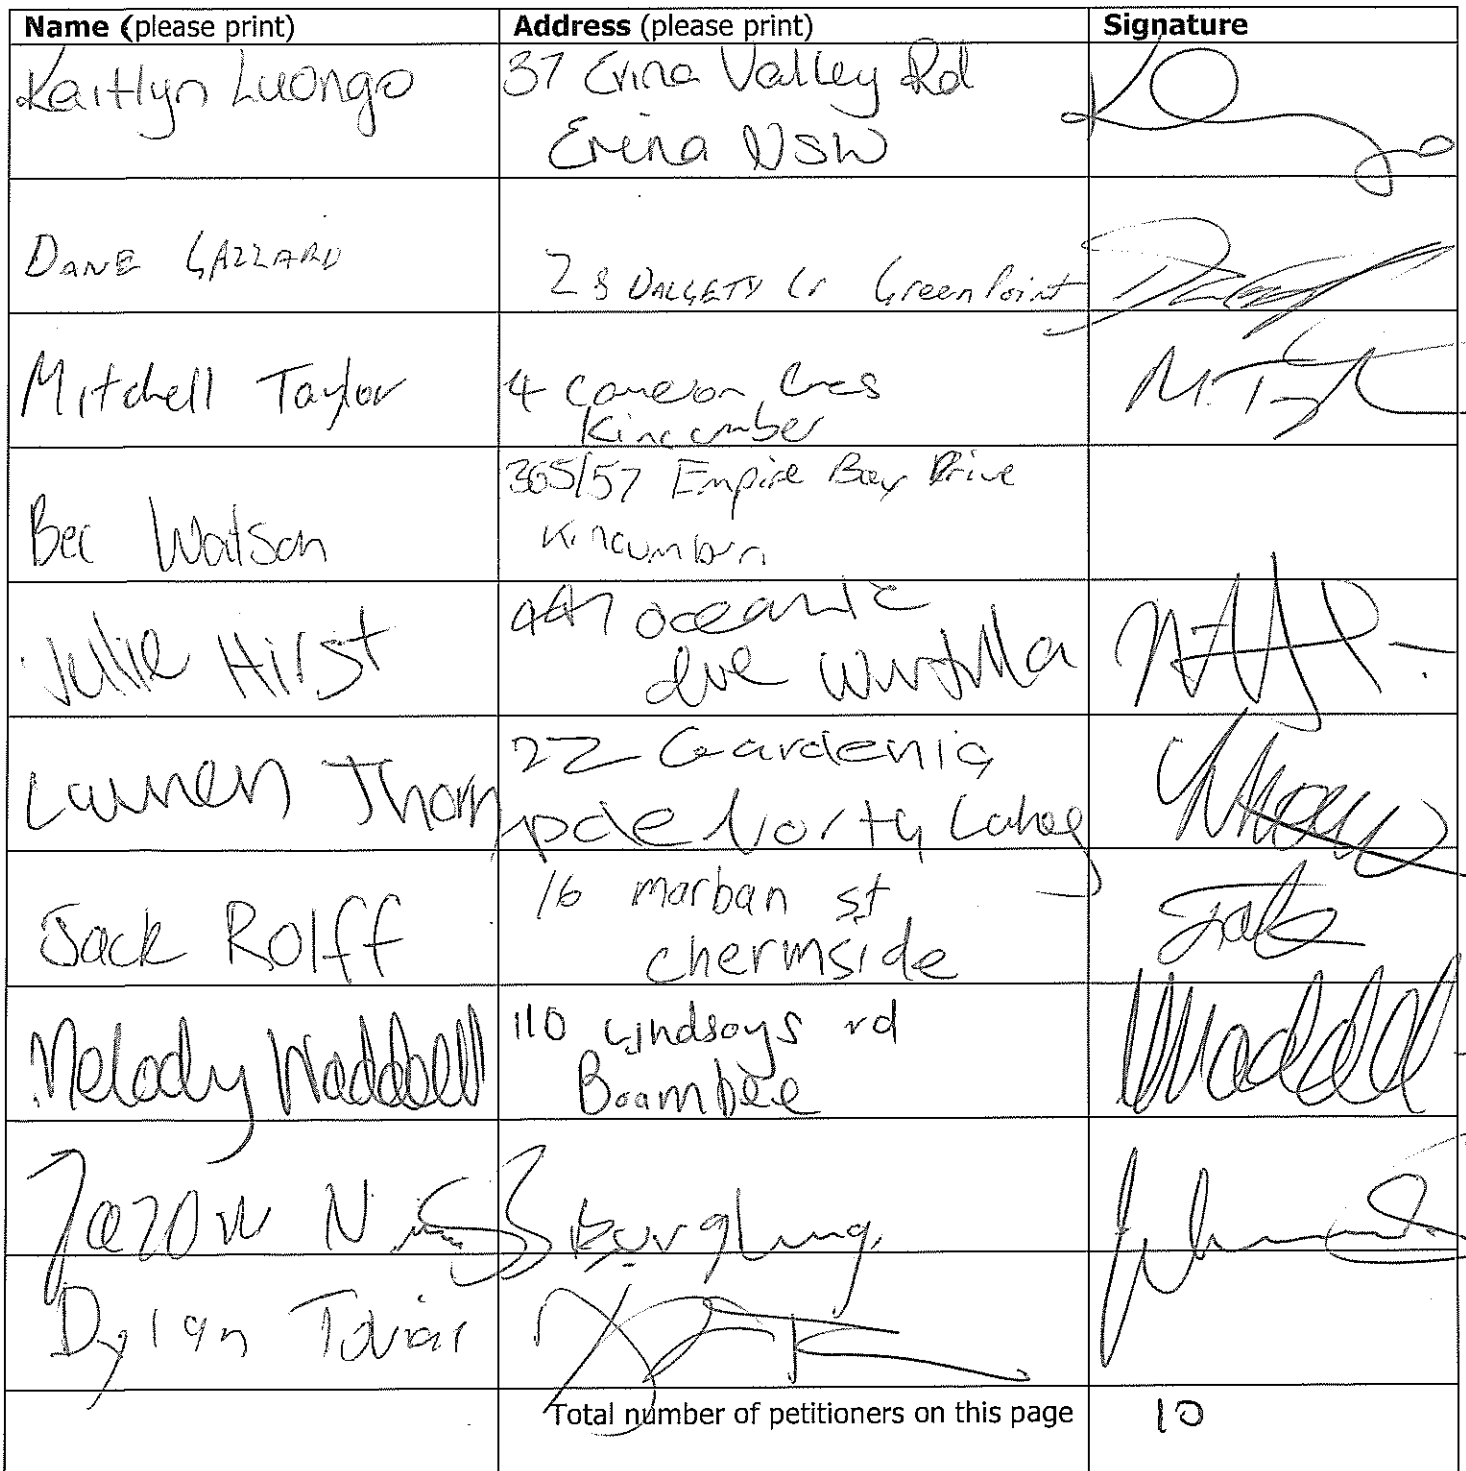 Name (please print) Address (please print) Signature
Kaitlyn Luongo 37 Erina Valley Rd
Erina NSW
DANE GAZZARD 28 DALGETY Cr Green Point
Mitchell Taylor 4 Cameron Cres
Kincumber
Bec Watson 365/57 Empire Bay Drive
Kincumber
Julie Hirst 447 oceanic
dve Wurtulla
Lauren Thorn 22 Gardenia
pde North Lakes
Jack Rolff 16 marban st
chermside
Melody Waddell 110 Lindsays rd
Boambee
Dylan
Total number of petitioners on this page 10